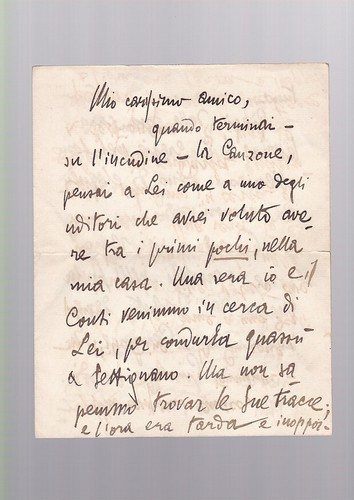 Mio carissimo amico,
quando terminai –
su l'incudine – la Canzone,
pensai a Lei come a uno degli
uditori che avrei voluto ave-
re tra i primi pochi, nella
mia casa. Una sera io e il
Conti venimmo in cerca di
Lei, per condurLa quassù
a Settignano. Ma non sa-
pemmo trovar le Sue tracce;
e l'ora era tarda e inoppor-